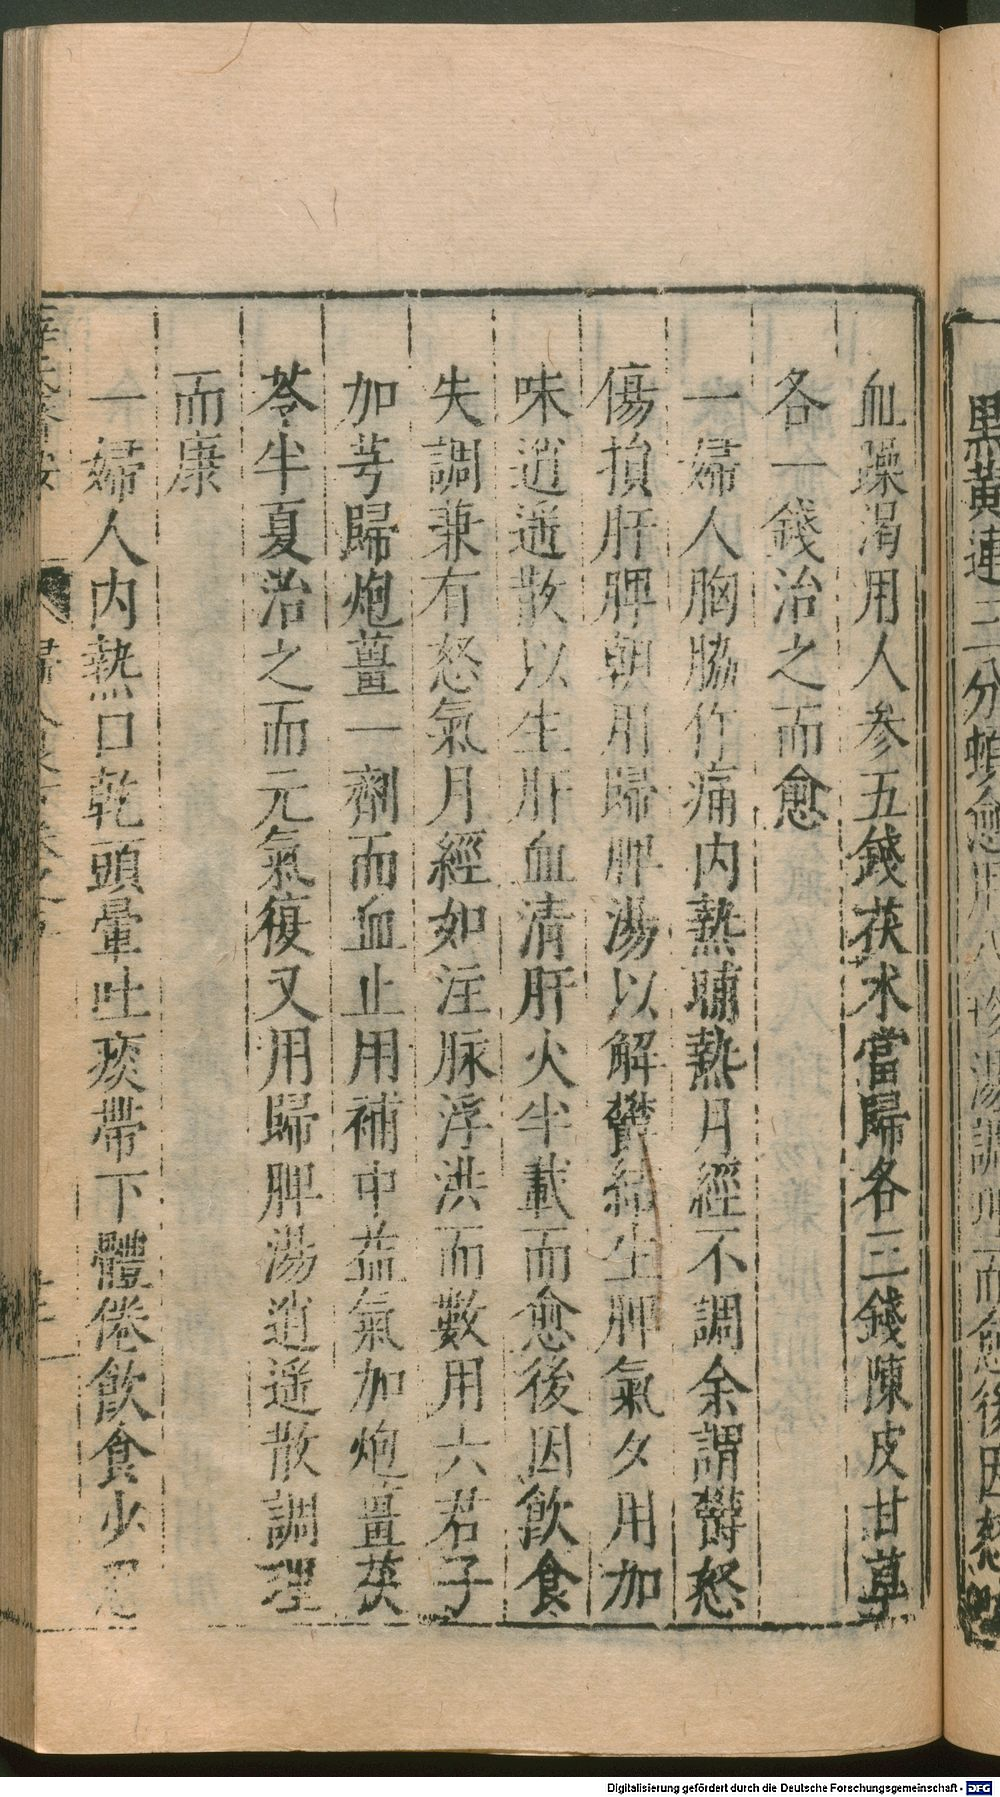 血躁渴用人参五錢茯朮當歸各三錢陳皮甘草
各一錢治之而愈
一婦人胸脇作痛内熱晡熱月經不調余謂鬱怒
傷損肝脾朝用歸脾湯以解鬱結生脾氣夕用加
味逍遥散以生肝血清肝火半載而愈後因飲食
失調兼有怒氣月經如注脉浮洪而數用六君子
加芎歸炮薑一劑而血止用補中益氣加炮薑茯
苓半夏治之而元氣復又用歸脾湯逍遥散調理
而康
一婦人内熱口乾頭暈吐痰帶下體倦飲食少
Digitalisierung gefördert durch die Deutsche Forschungsgemeinschaft - DFG